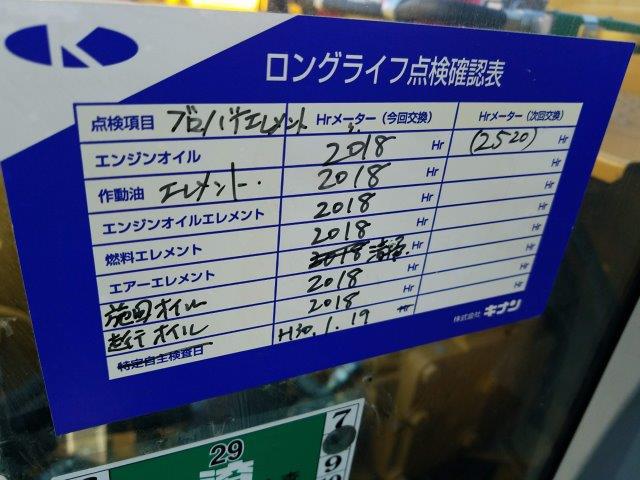 K
ロングライフ点検確認表
点検項目 ブローバイエレメント Hrメーター(今回交換) Hrメーター(次回交換)
エンジンオイル 2018 Hr (2520) Hr
作動油 エレメント. 2018 Hr Hr
エンジンオイルエレメント 2018 Hr Hr
燃料エレメント 2018 Hr Hr
エアーエレメント 2018 清掃. Hr Hr
旋回オイル 2018 Hr Hr
走行オイル 2018 Hr Hr
特定自主検査日 H30.1.19 Hr
株式会社 キナン
29
7
9